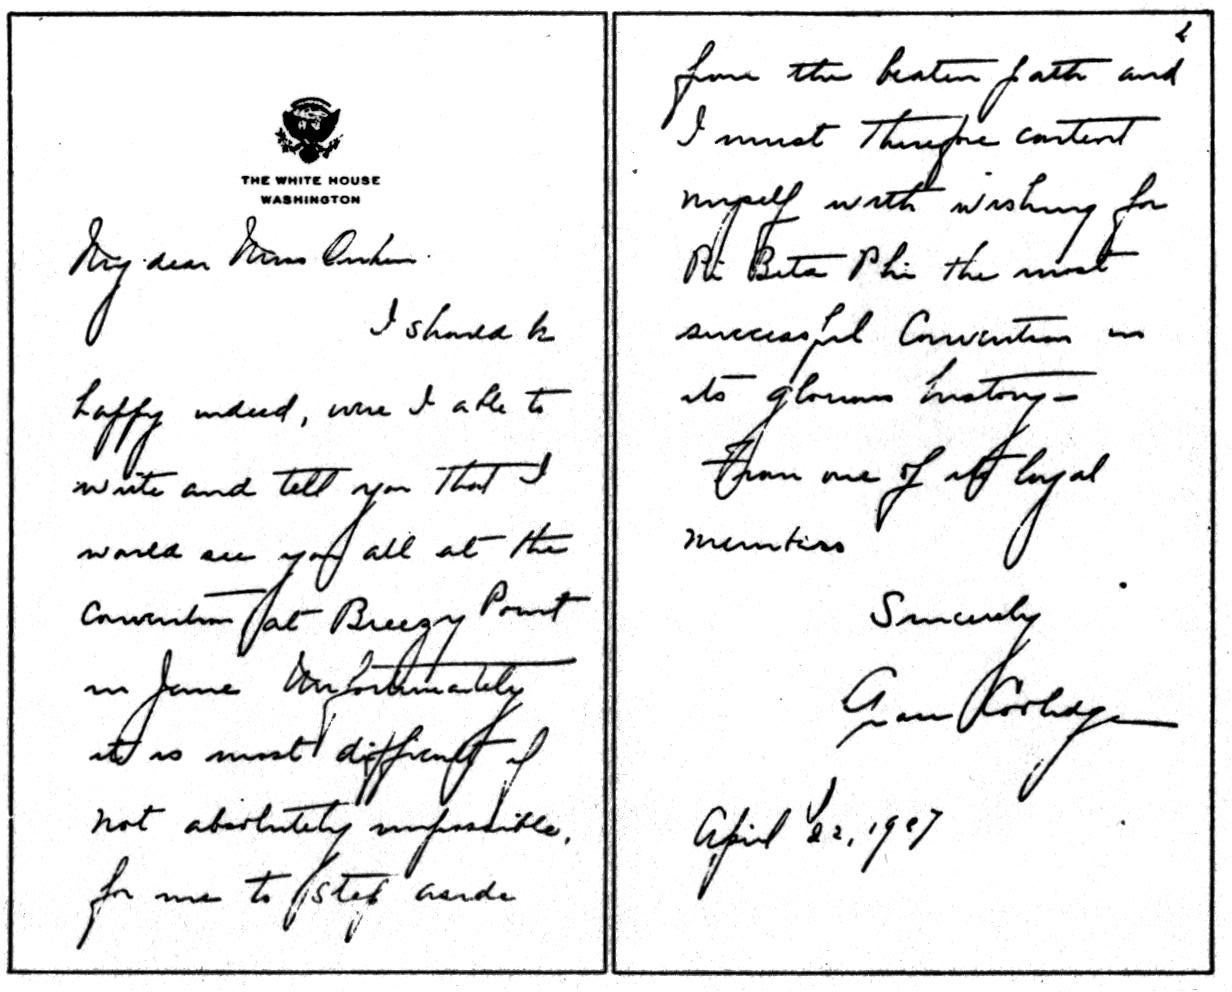 THE WHITE HOUSE
WASHINGTON
My dear Miss
I should be
happy indeed, were I able to
write and tell you that I
would see you all at the
Convention at Breezy Point
in June Unfortunately
it is most difficult if
not absolutely impossible,
for me to step aside
2
from the beaten path and
I must therefore content
myself with wishing for
Pi Beta Phi the most
successful Convention in
its glorious history—
From one of its loyal
members
Sincerely
Grace Coolidge
April 22, 1927